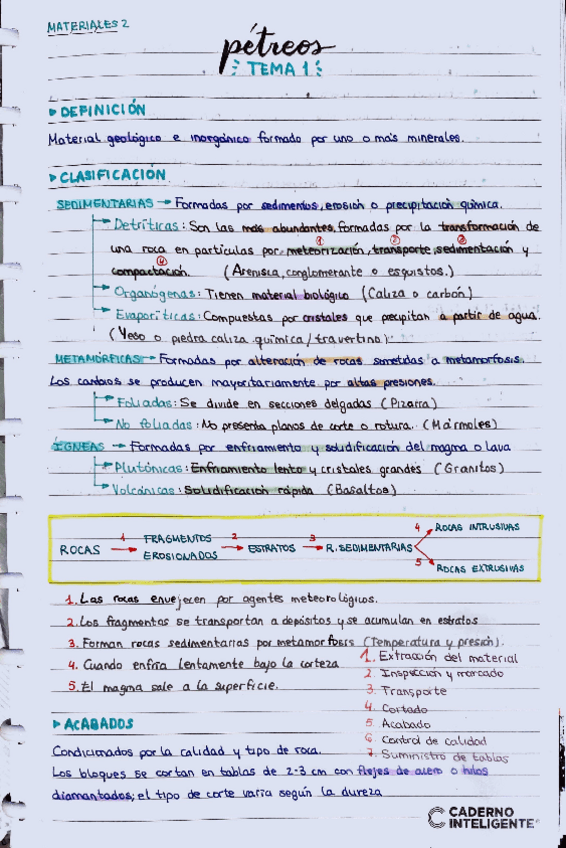 MATERIALES 2
pétreos
TEMA 1
DEFINICIÓN
Material geológico e inorgánico formado por uno o más minerales.
CLASIFICACIÓN
SEDIMENTARIAS → Formadas por sedimentos, erosión o precipitación química.
Detríticas: Son las más abundantes, formadas por la transformación de
una roca en partículas por meteorización, transporte, sedimentación y
1 2 3
compactación. (Arenisca, conglomerante o esquistos.)
4
Organógenas: Tienen material biológico (Caliza o carbón)
Evaporíticas: Compuestas por cristales que precipitan a partir de agua.
(Yeso o piedra caliza química / travertino).
METAMÓRFICAS → Formadas por alteración de rocas sometidas a metamorfosis.
Los cambios se producen mayoritariamente por altas presiones.
Foliadas: Se divide en secciones delgadas (Pizarra)
No foliadas: No presenta planos de corte o rotura. (Mármoles)
ÍGNEAS → Formadas por enfriamiento y solidificación del magma o lava
Plutónicas: Enfriamiento lento y cristales grandes (Granitos)
Volcánicas: Solidificación rápida (Basaltos)
ROCAS 1→ FRAGMENTOS EROSIONADOS 2→ ESTRATOS 3→ R. SEDIMENTARIAS
4 ROCAS INTRUSIVAS
5 ROCAS EXTRUSIVAS
1. Las rocas envejecen por agentes meteorológicos.
2. Los fragmentos se transportan a depósitos y se acumulan en estratos
3. Forman rocas sedimentarias por metamorfosis (Temperatura y presión).
4. Cuando enfría lentamente bajo la corteza
5. El magma sale a la superficie.
1. Extracción del material
2. Inspección y mercado
3. Transporte
4. Cortado
5. Acabado
6. Control de calidad
7. Suministro de tablas
ACABADOS
Condicionados por la calidad y tipo de roca.
Los bloques se cortan en tablas de 2-3 cm con flejes de acero o hilos
diamantados; el tipo de corte varía según la dureza
CADERNO
INTELIGENTE